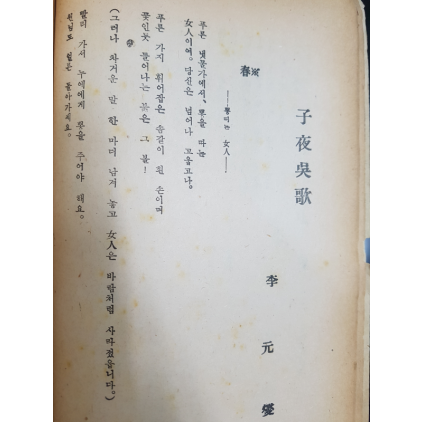 子夜吳歌
李元燮
春
뽕따는 女人
푸른 냇물가에서, 뽕을 따는
女人이여. 당신은 넘어나 고옵고나.
푸른 가지 휘어잡은 손길이 흰 손이며
꽃인듯 돌어나는 붉은 그 볼!
(그러나 차거운 말 한 마디 남겨 놓고 女人은 바람처럼 사라졌읍니다.)
빨리 가서 누에에게 뽕을 주어야 해요.
원님도 얼른 돌아가세요.